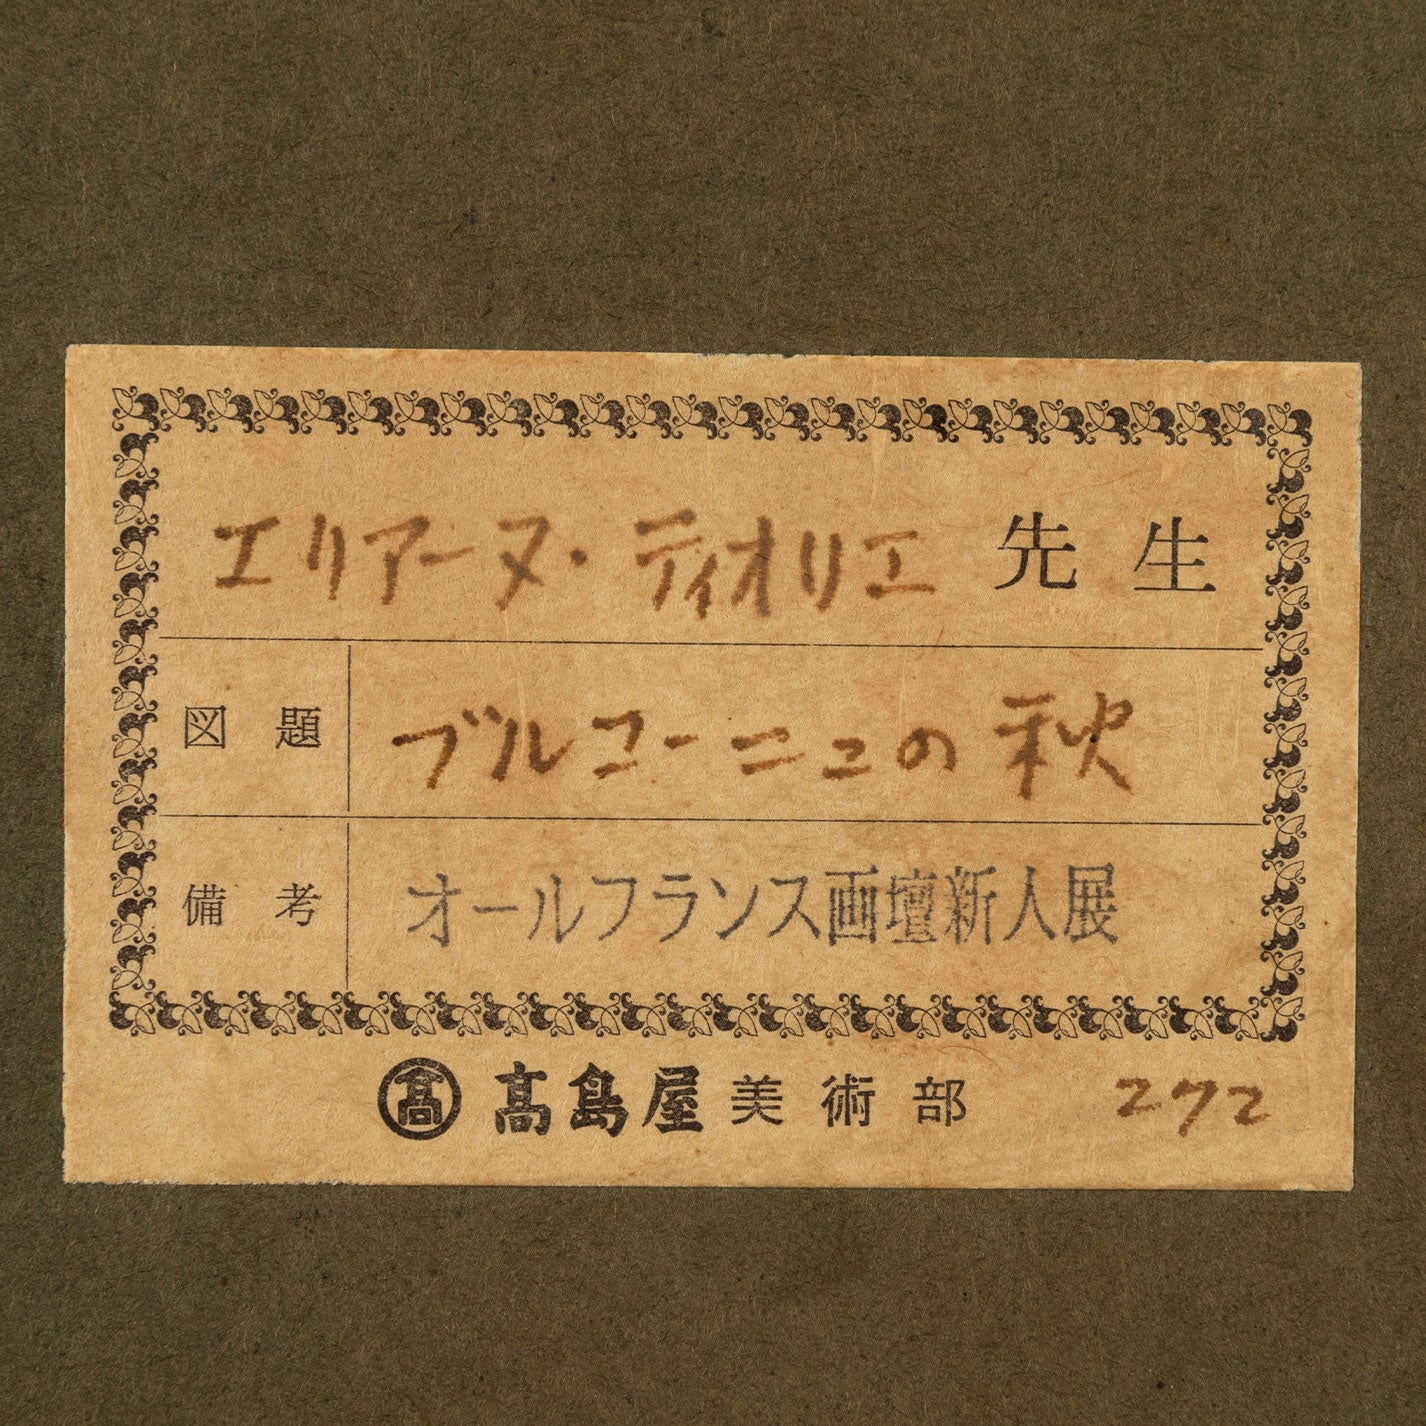 エリアーヌ・ティオリエ 先生
図題 ブルコーニュの秋
備考 オールフランス画壇新人展
髙 髙島屋美術部 272